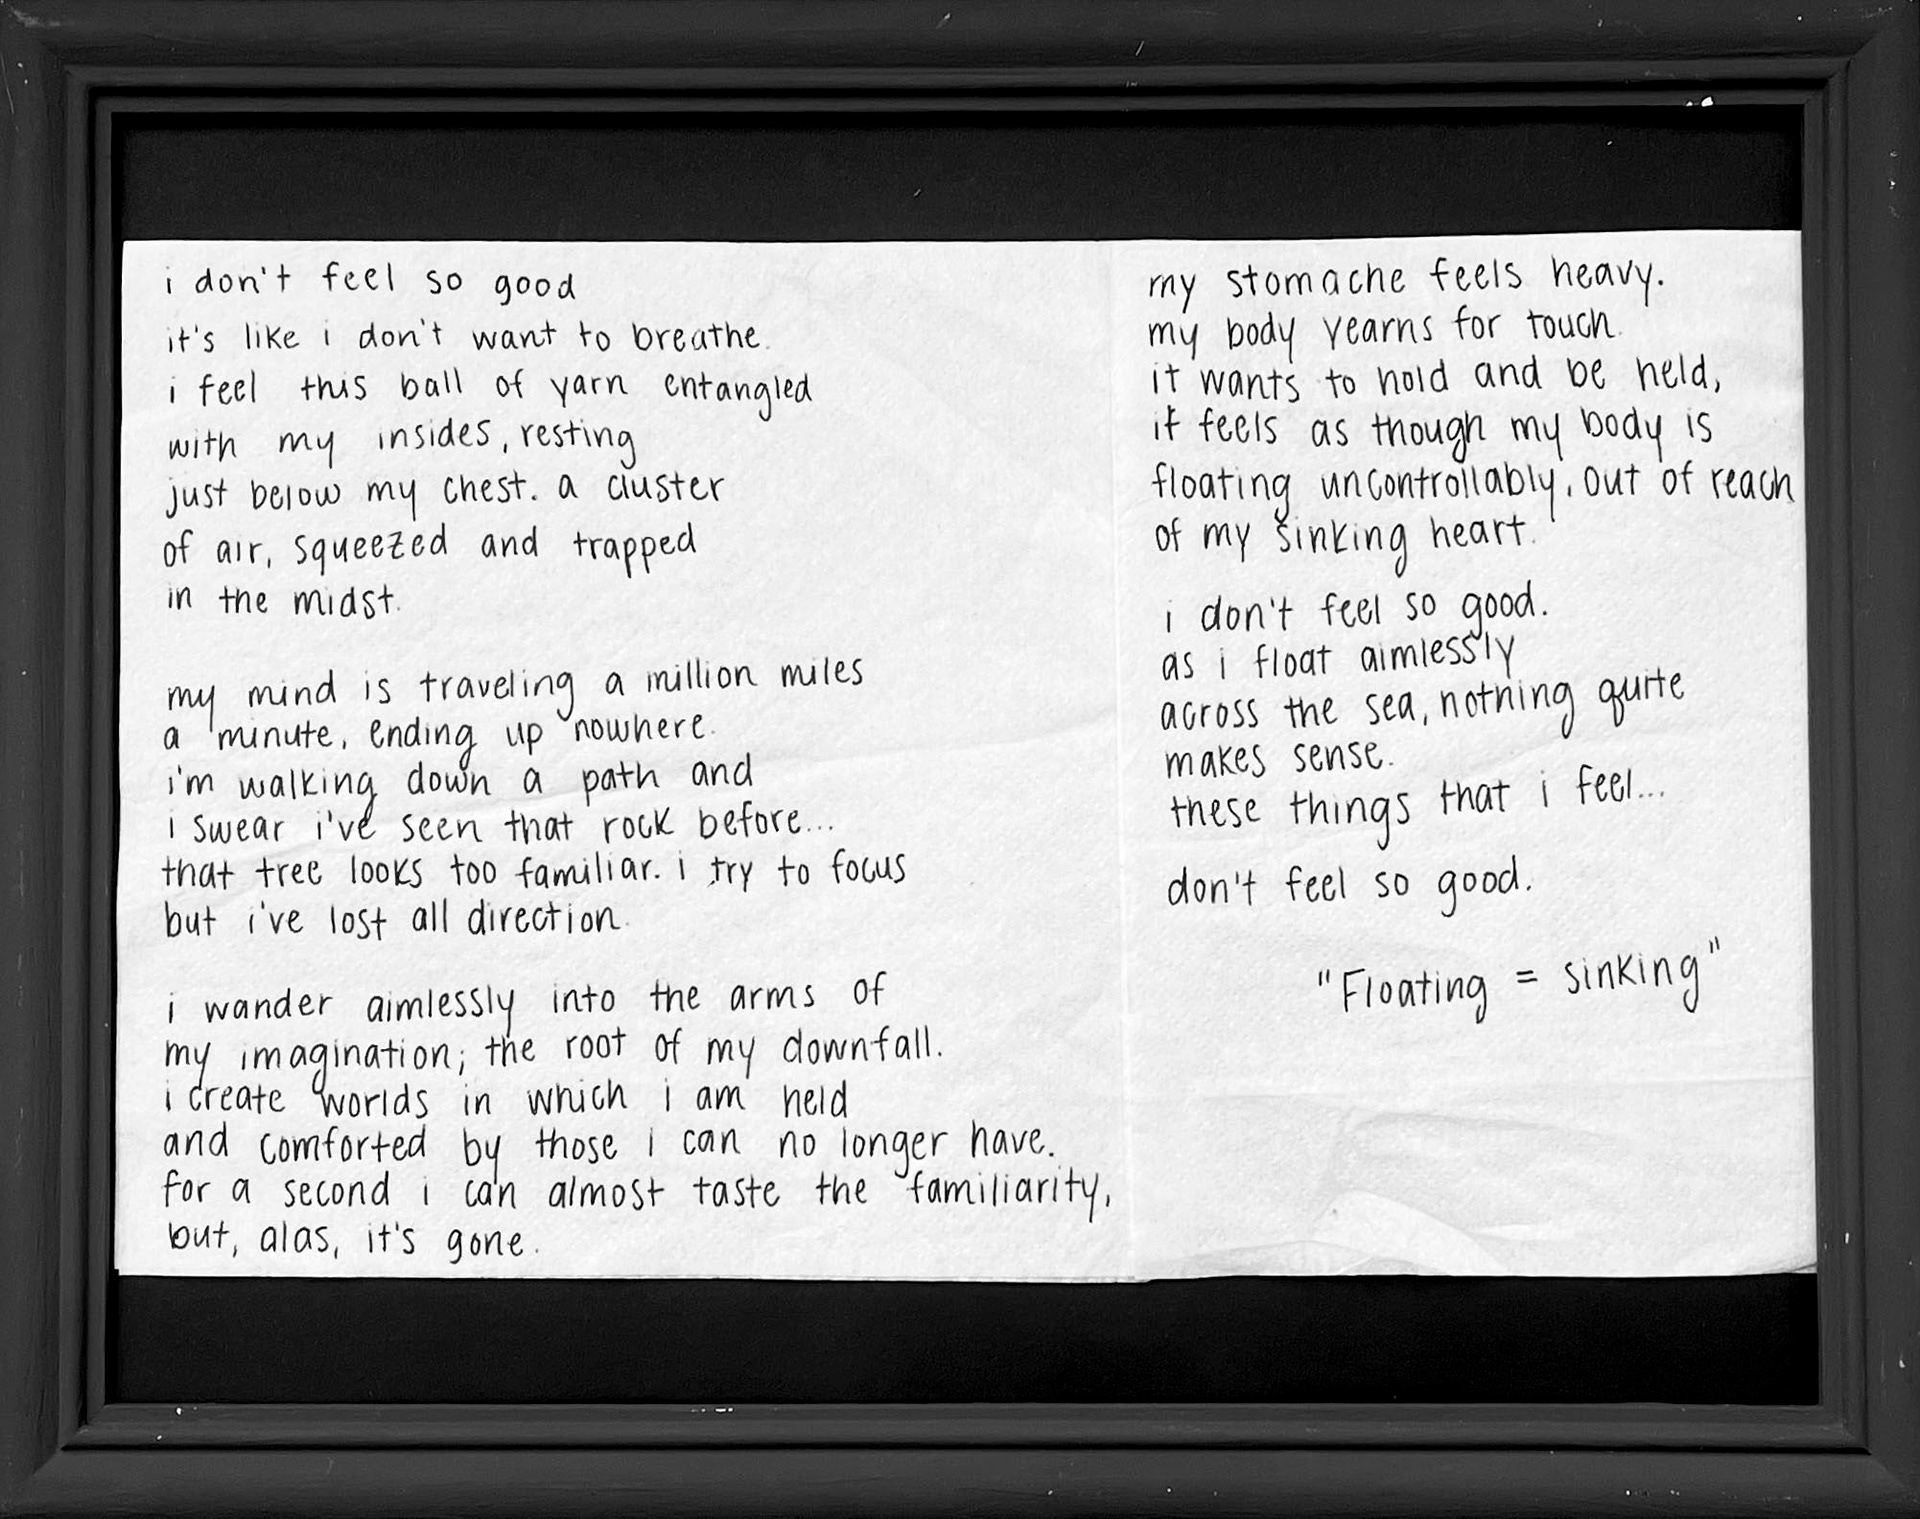 i don't feel so good
it's like i don't want to breathe.
i feel this ball of yarn entangled
with my insides, resting
just below my chest. a cluster
of air, squeezed and trapped
in the midst.
my mind is traveling a million miles
a minute, ending up nowhere.
i'm walking down a path and
i swear i've seen that rock before...
that tree looks too familiar. i try to focus
but i've lost all direction.
i wander aimlessly into the arms of
my imagination; the root of my downfall.
i create worlds in which i am held
and comforted by those i can no longer have.
for a second i can almost taste the familiarity,
but, alas, it's gone.
my stomache feels heavy.
my body yearns for touch.
it wants to hold and be held,
it feels as though my body is
floating uncontrollably, out of reach
of my sinking heart.
i don't feel so good.
as i float aimlessly
across the sea, nothing quite
makes sense.
these things that i feel...
don't feel so good.
"Floating = sinking"